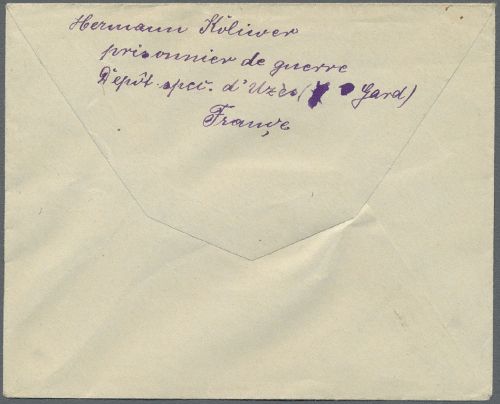 Hermann Köliwer
prisonnier de guerre
Dépôt spéc. d'Uzès ( Gard)
France